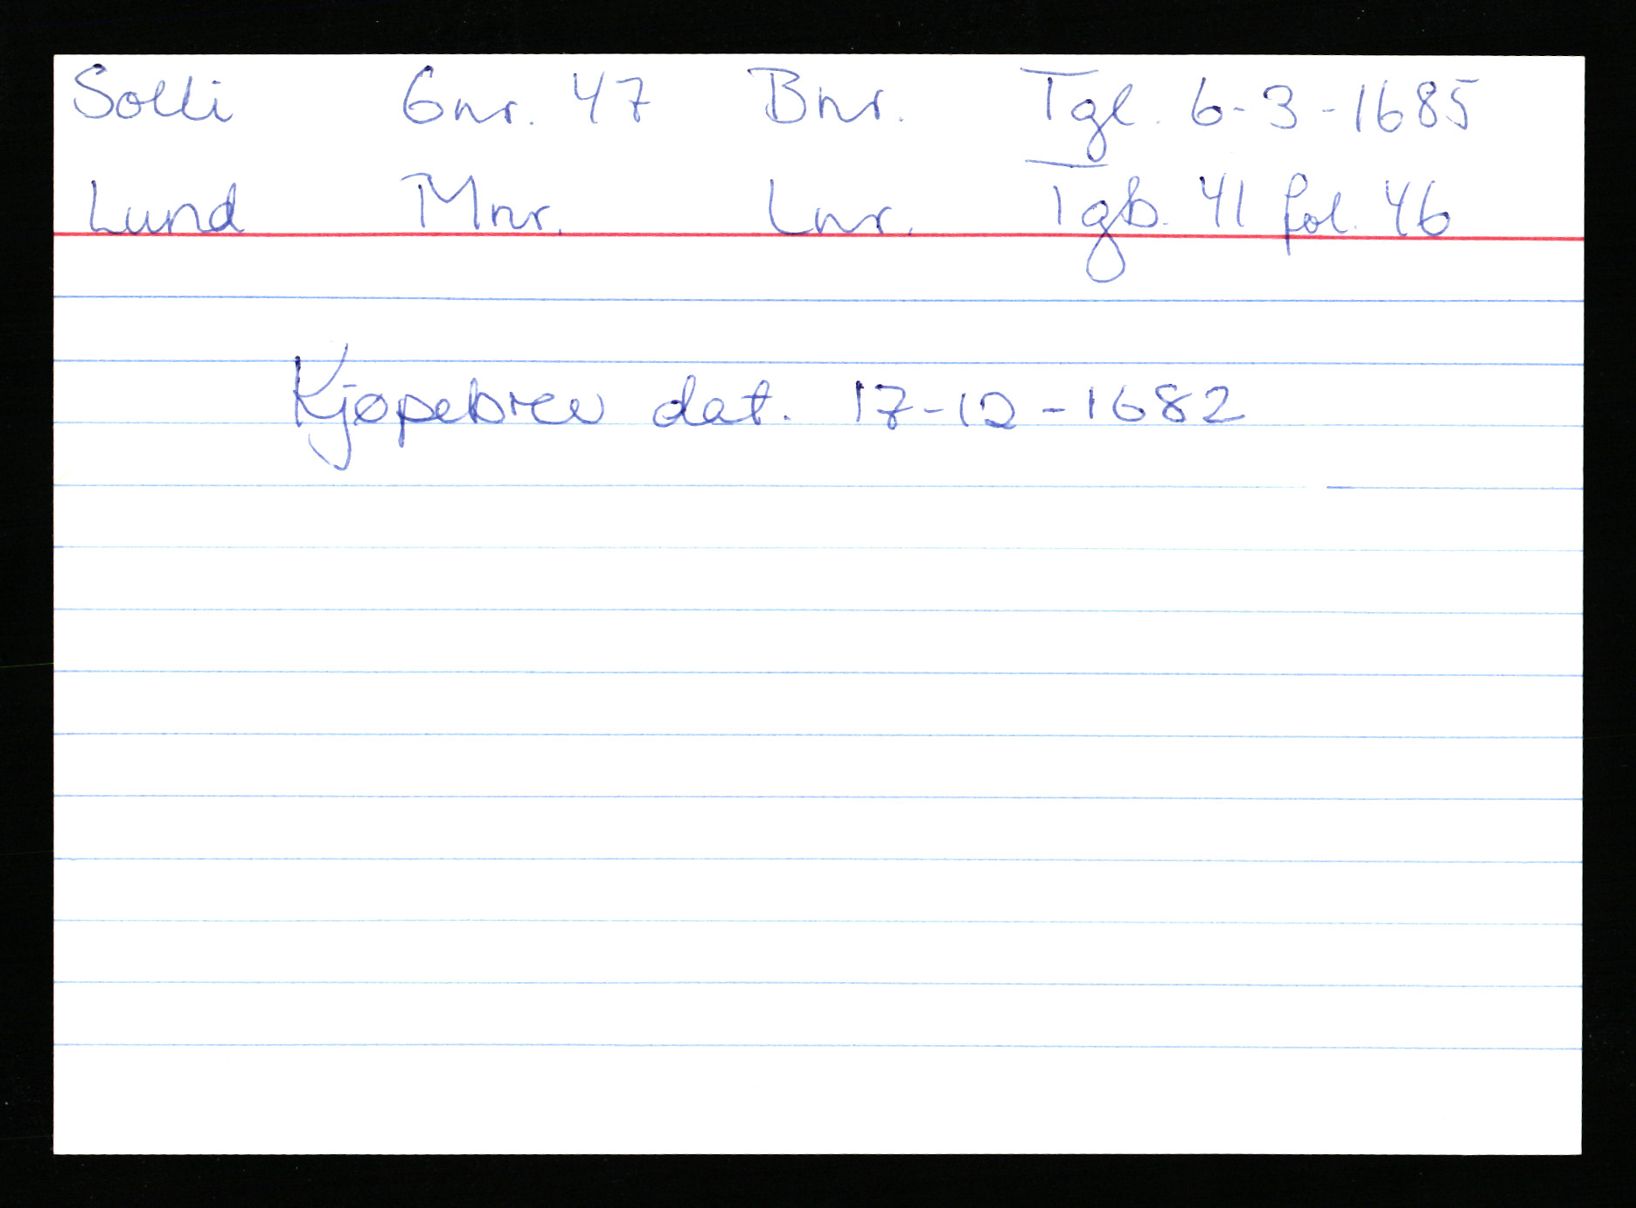 Solli Gnr. 47 Bnr. Tgl. 6-3-1685
Lund Mnr. Lnr. Tgb. 41 fol. 46
Kjøpebrev dat. 17-12-1682